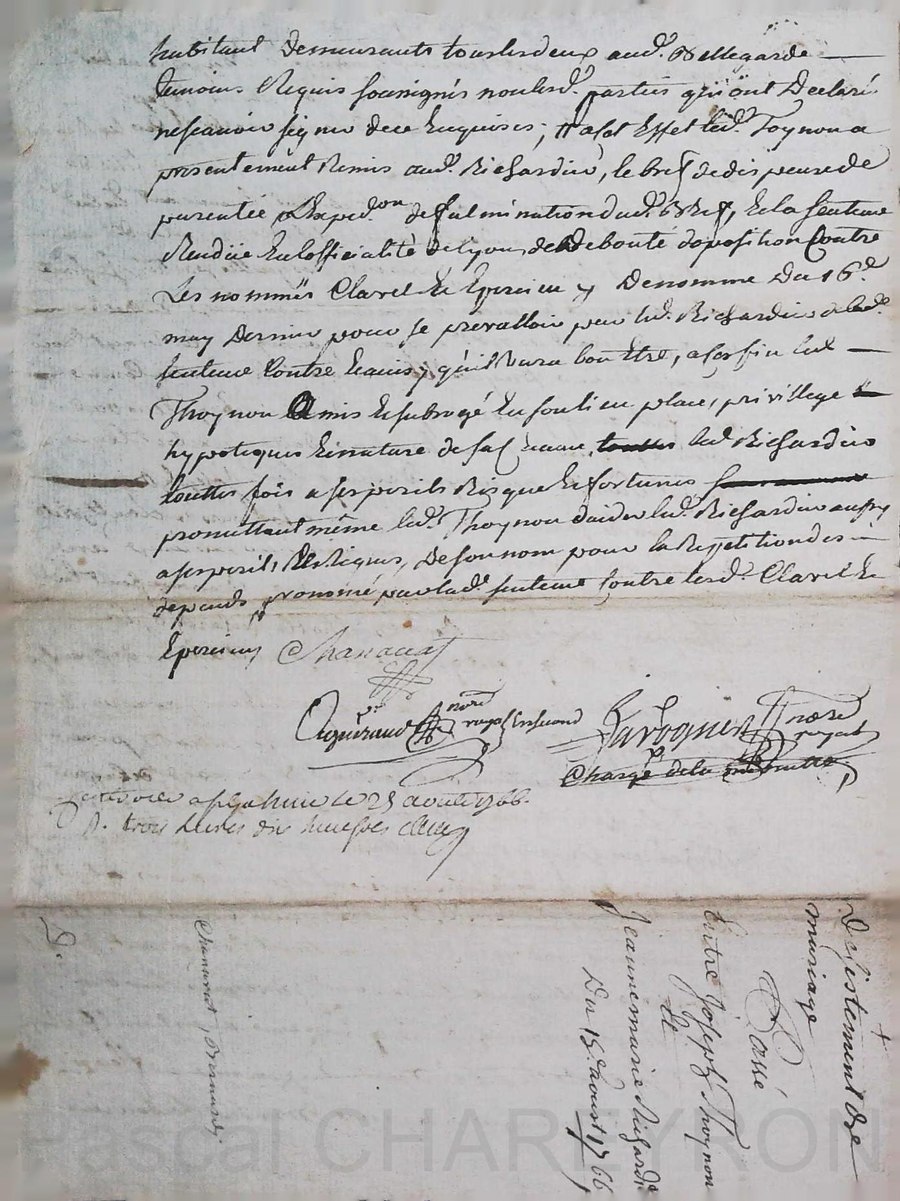 habitant demeurants tous les deux aud. Bellegarde
temoins Requis soussignés non lesd. parties qui ont Declaré
ne scavoir signer de ce Enquises; et a cet Effet led. Toynon a
presentement Remis aud. Richardier, le bref de dispense de
parentée Lexped.on de fulmination dud. bref, Et la sentence
Rendüe En lofficialité de Lyon, de Debouté doposition Contre
Les nommés Clavel Et Epercieu y Denommé Du 16.e
may Dernier pour se prevalloir par led. Richardier de lad.
sentence Contre Et ainsy qu'il verra bon Etre, a ces fin led.
Thoynon mis Et subrogé En son lieu place, privillege
hypoteques Et nature de sa Creance, led. Richardier
touttes fois a ses perils Risque Et fortunes
promettant même led. Thoynon d'aider led. Richardier aussy
a ses perils, Et Risques, De son nom pour la Repetition des
depends prononcé par lad. sentence Contre lesd. Clavel Et
Epercieu Chanavat
nore royal En second
nore royal
Chargé de la minutte
le 25 aoust 1766.
R. trois Livres dix huit sols
Desistement de
mariage
Passé
Entre Joseph Thoynon
Et
Jeanne marie Richardier
Du 15.e aoust 1766
Chanavat,
Pascal CHAREYRON